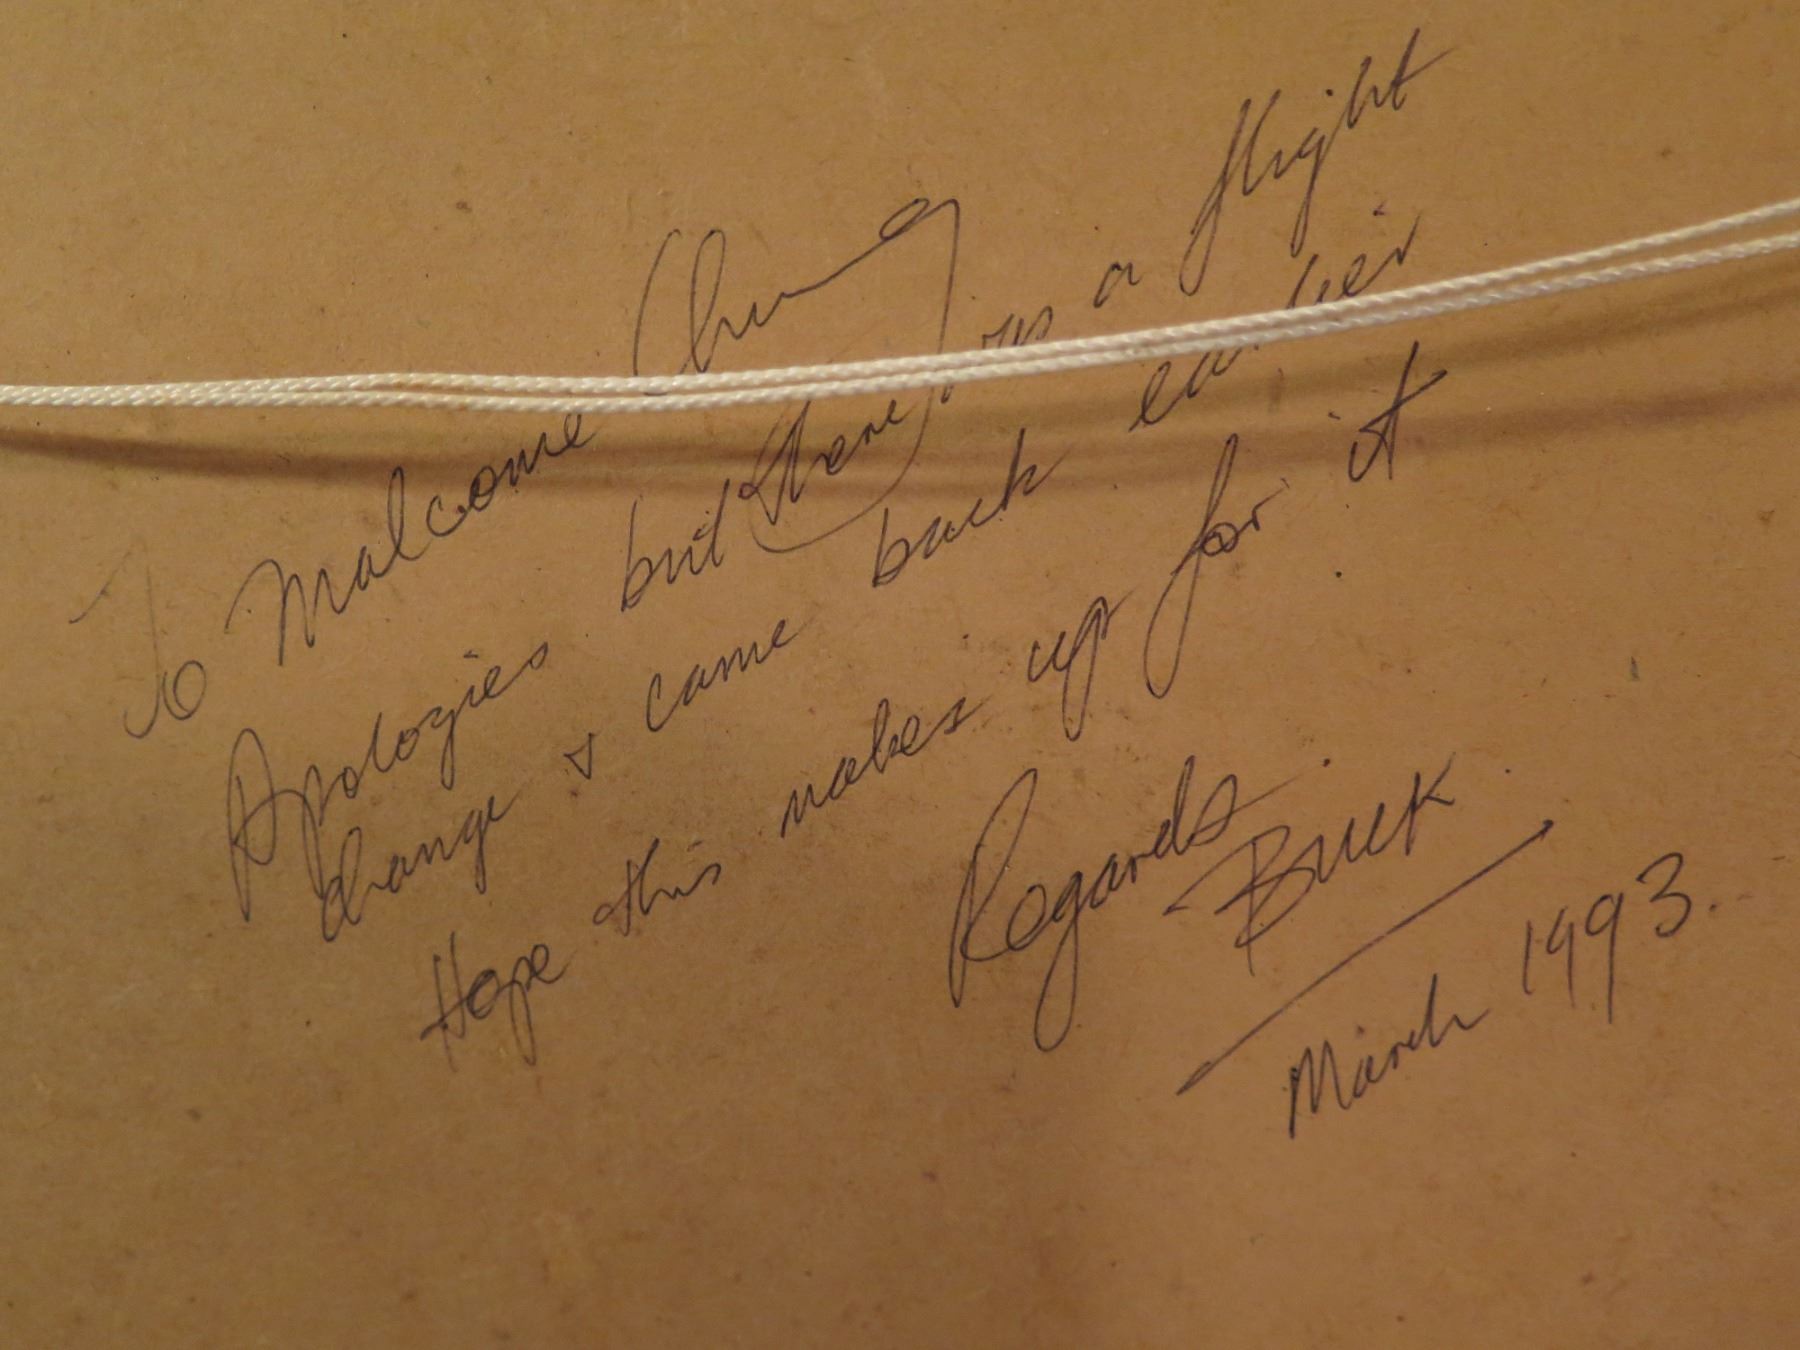 To Malcome Chung
Apologies but there was a flight
change & came back earlier
Hope this makes up for it
Regards
Buck
March 1993.